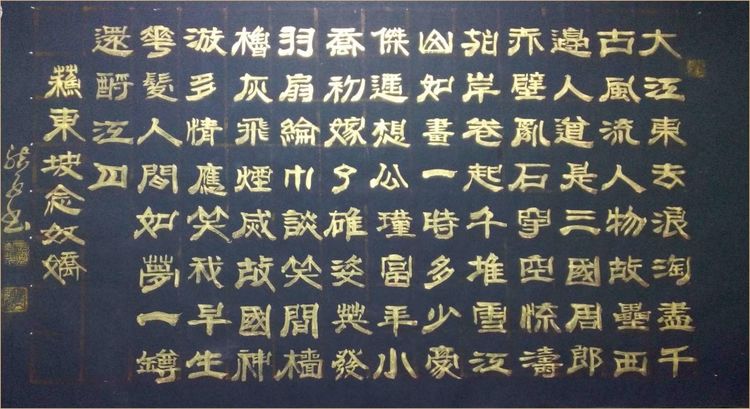 大江東去浪淘盡千
古風流人物故壘西
邊人道是三國周郎
赤壁亂石穿空惊濤
拍岸卷起千堆雪江
山如畫一時多少豪
傑遥想公瑾當年小
喬初嫁了雄姿英發
羽扇綸巾談笑間檣
櫓灰飛煙滅故國神
游多情應笑我早生
華髮人間如夢一罇
還酹江月
蘇東坡念奴嬌